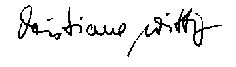 Christiane Wittig